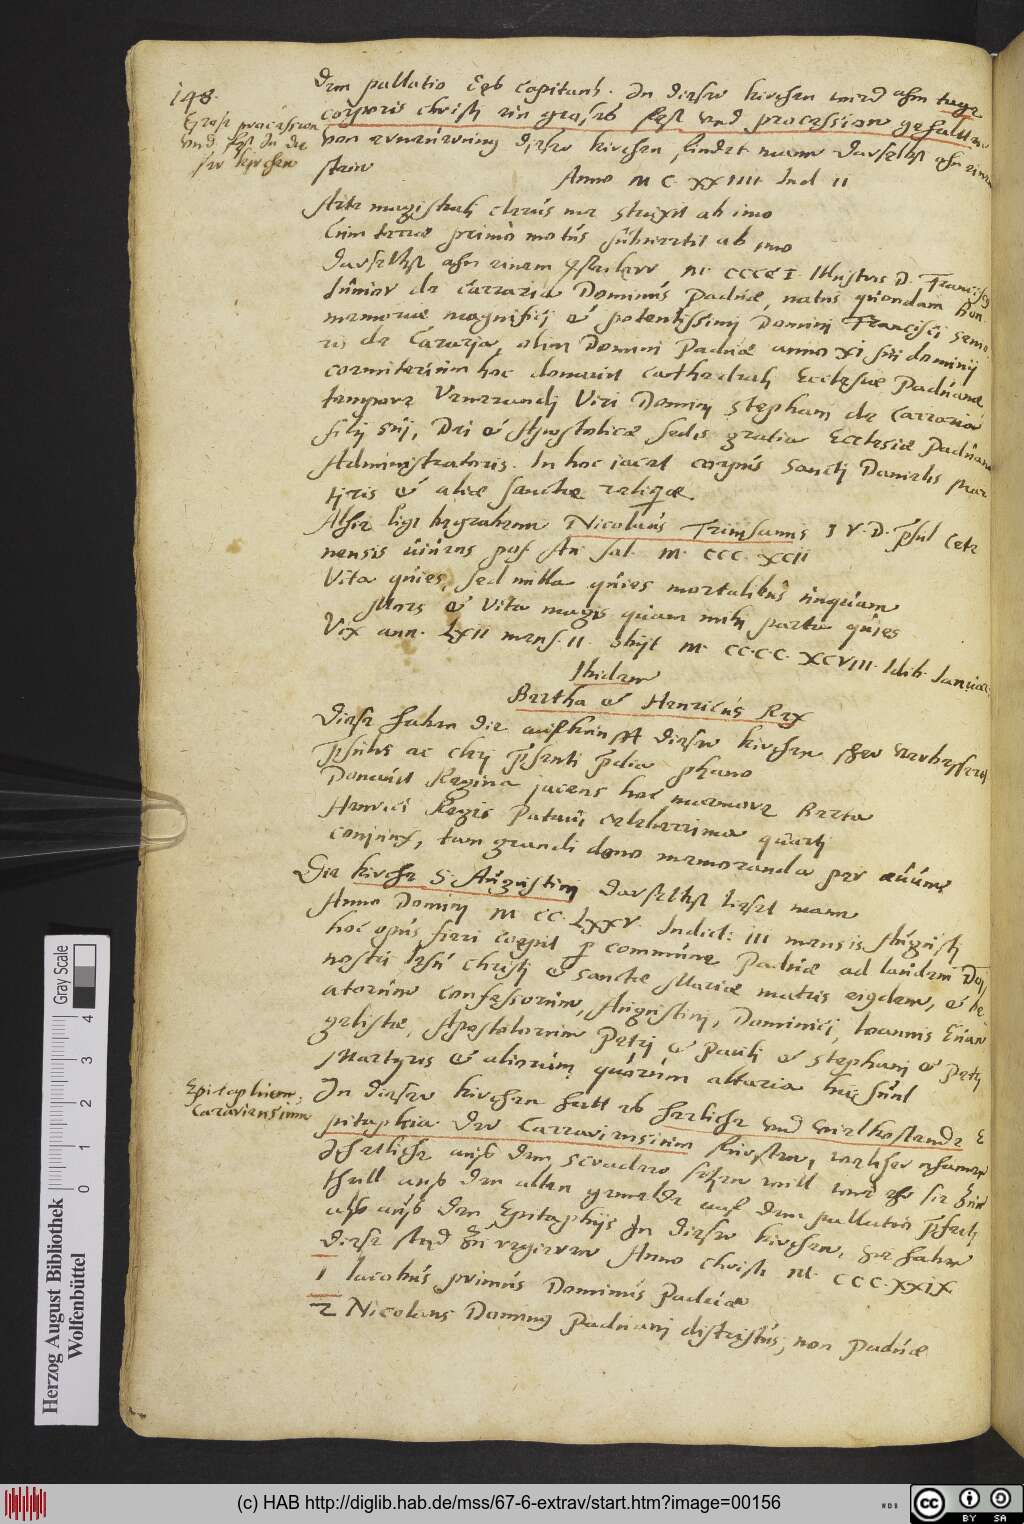 148.
Gross procession
vnd fest In die
ser kirchen
dem pallatio des Capitanij. In dieser kirchen wird ahm tage
corporis christj ein grosses fest vnd procession gehalten
von erneurung dieser kirchen findet mann daselbst ahn einem
stein
Anno M C XXIIII Ind II
Arte magistralj clarus me struxit ab imo
Cum terrae primo motus subvertit ab imo
daselbst ahn einem M CCCC I. Illustris D. Franciscus
Junior de Carraria Dominus Paduae, natus quondam bon
memoriae magnificj et potentissimj Dominj Francisci senio
ris de Cararia, olim Dominj Paduae anno XI sui dominij
coemiterium hoc donavit cathedralj Ecclesiae Paduanae
tempore Venerandj Viri Dominj Stephanj de Carraria
filij suj, Dei et Apostolicae sedis gratia Ecclesiae Paduanae
Administratoris. In hoc jacet corpus Sanctj Danielis Mar
tyris et aliae sanctae reliquae
Alhie ligt begraben Nicolaus Trinsanus I V. D. psul Cete
nensis vivens pos. An sal. M. CCC. XCII
Vita quies, sed nulla quies mortalibus unquam
Mors et Vita magis quam mihj parta quies
Vix ann. LXII mens. II. Obijt M. CC.C.C. XCVIII. Idib. Januar
Ibidem
Bertha et Henricus Rex
Diese haben die auffkunfft dieser kirchen sehr verbessert
Psulis ac clerj psentj pdia phano
Donavit Regina jacens hoc marmore Berta
Henrici Regis Patavj celeberrima quartj
conjunx, tam grandi dono memoranda per aevum
Die kirche S. Augustinj daselbst liest mann
Anno Dominj M CC. LXXV. Indict: III mensis Augustj
hoc opus fieri coepit p commune Paduae ad laudem Dnj
nostri Jesu christj et Sanctae Mariae matris eiusdem, et be
atorum confessorum, Augustinj, Dominici, Joannis Euan
gelistae, Apostolorum Petrj et Paulj et Stephanj et Petrj
Martyris et aliorum quorum altaria hic sunt
Epitaphium
Carrariensium
In dieser kirchen hatt es herliche vnd vielkostende E
pitaphia der Carrariensium fursten, welcher nhamen
auss dem Scradero setzen will wie ehr sie zum
theill auss den alten gemelde auf dem pallatio Pfectj
alss auss den Epitaphijs In dieser kirchen, sie haben
diese Stad zu regieren Anno christi M. CCC.XXIX
1 Iacobus primus Dominus Paduae
2 Nicolaus Dominus Paduanj districtus, non Paduae
Herzog August Bibliothek
Wolfenbüttel
Gray Scale
0 1 2 3 4
(c) HAB http://diglib.hab.de/mss/67-6-extrav/start.htm?image=00156
WDB
cc BY SA